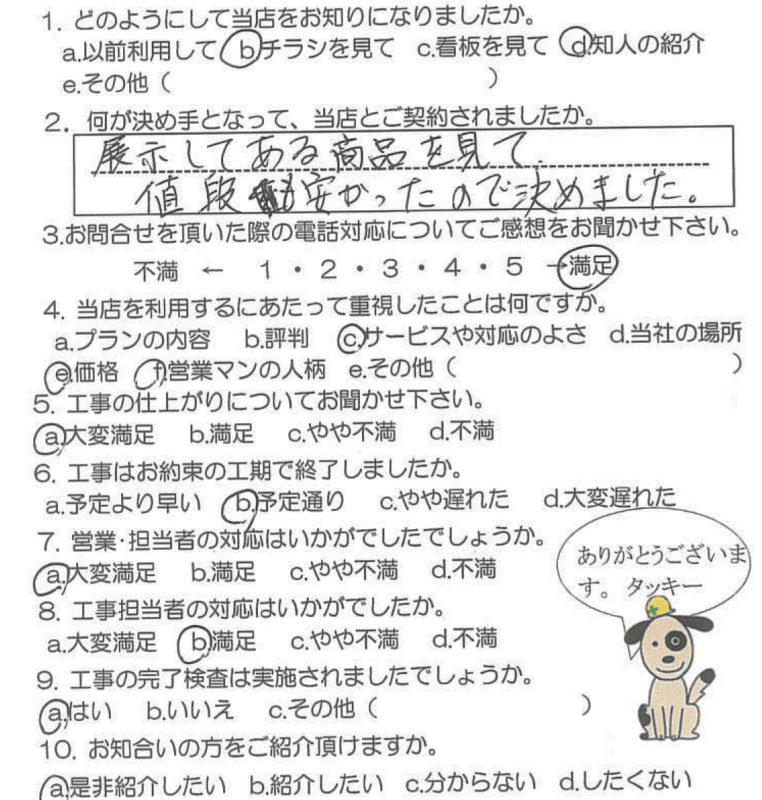 1. どのようにして当店をお知りになりましたか。
a.以前利用して b.チラシを見て c.看板を見て d.知人の紹介
e.その他（　　　）
2. 何が決め手となって、当店とご契約されましたか。
展示してある商品を見て、
値段も安かったので決めました。
3.お問合せを頂いた際の電話対応についてご感想をお聞かせ下さい。
不満 ← 1・2・3・4・5 →満足
4. 当店を利用するにあたって重視したことは何ですか。
a.プランの内容 b.評判 c.サービスや対応のよさ d.当社の場所
e.価格 f.営業マンの人柄 e.その他（　　　）
5. 工事の仕上がりについてお聞かせ下さい。
a.大変満足 b.満足 c.やや不満 d.不満
6. 工事はお約束の工期で終了しましたか。
a.予定より早い b.予定通り c.やや遅れた d.大変遅れた
7. 営業・担当者の対応はいかがでしたでしょうか。
a.大変満足 b.満足 c.やや不満 d.不満
ありがとうございま
す。 タッキー
8. 工事担当者の対応はいかがでしたか。
a.大変満足 b.満足 c.やや不満 d.不満
9. 工事の完了検査は実施されましたでしょうか。
a.はい b.いいえ c.その他（　　　）
10. お知合いの方をご紹介頂けますか。
a.是非紹介したい b.紹介したい c.分からない d.したくない